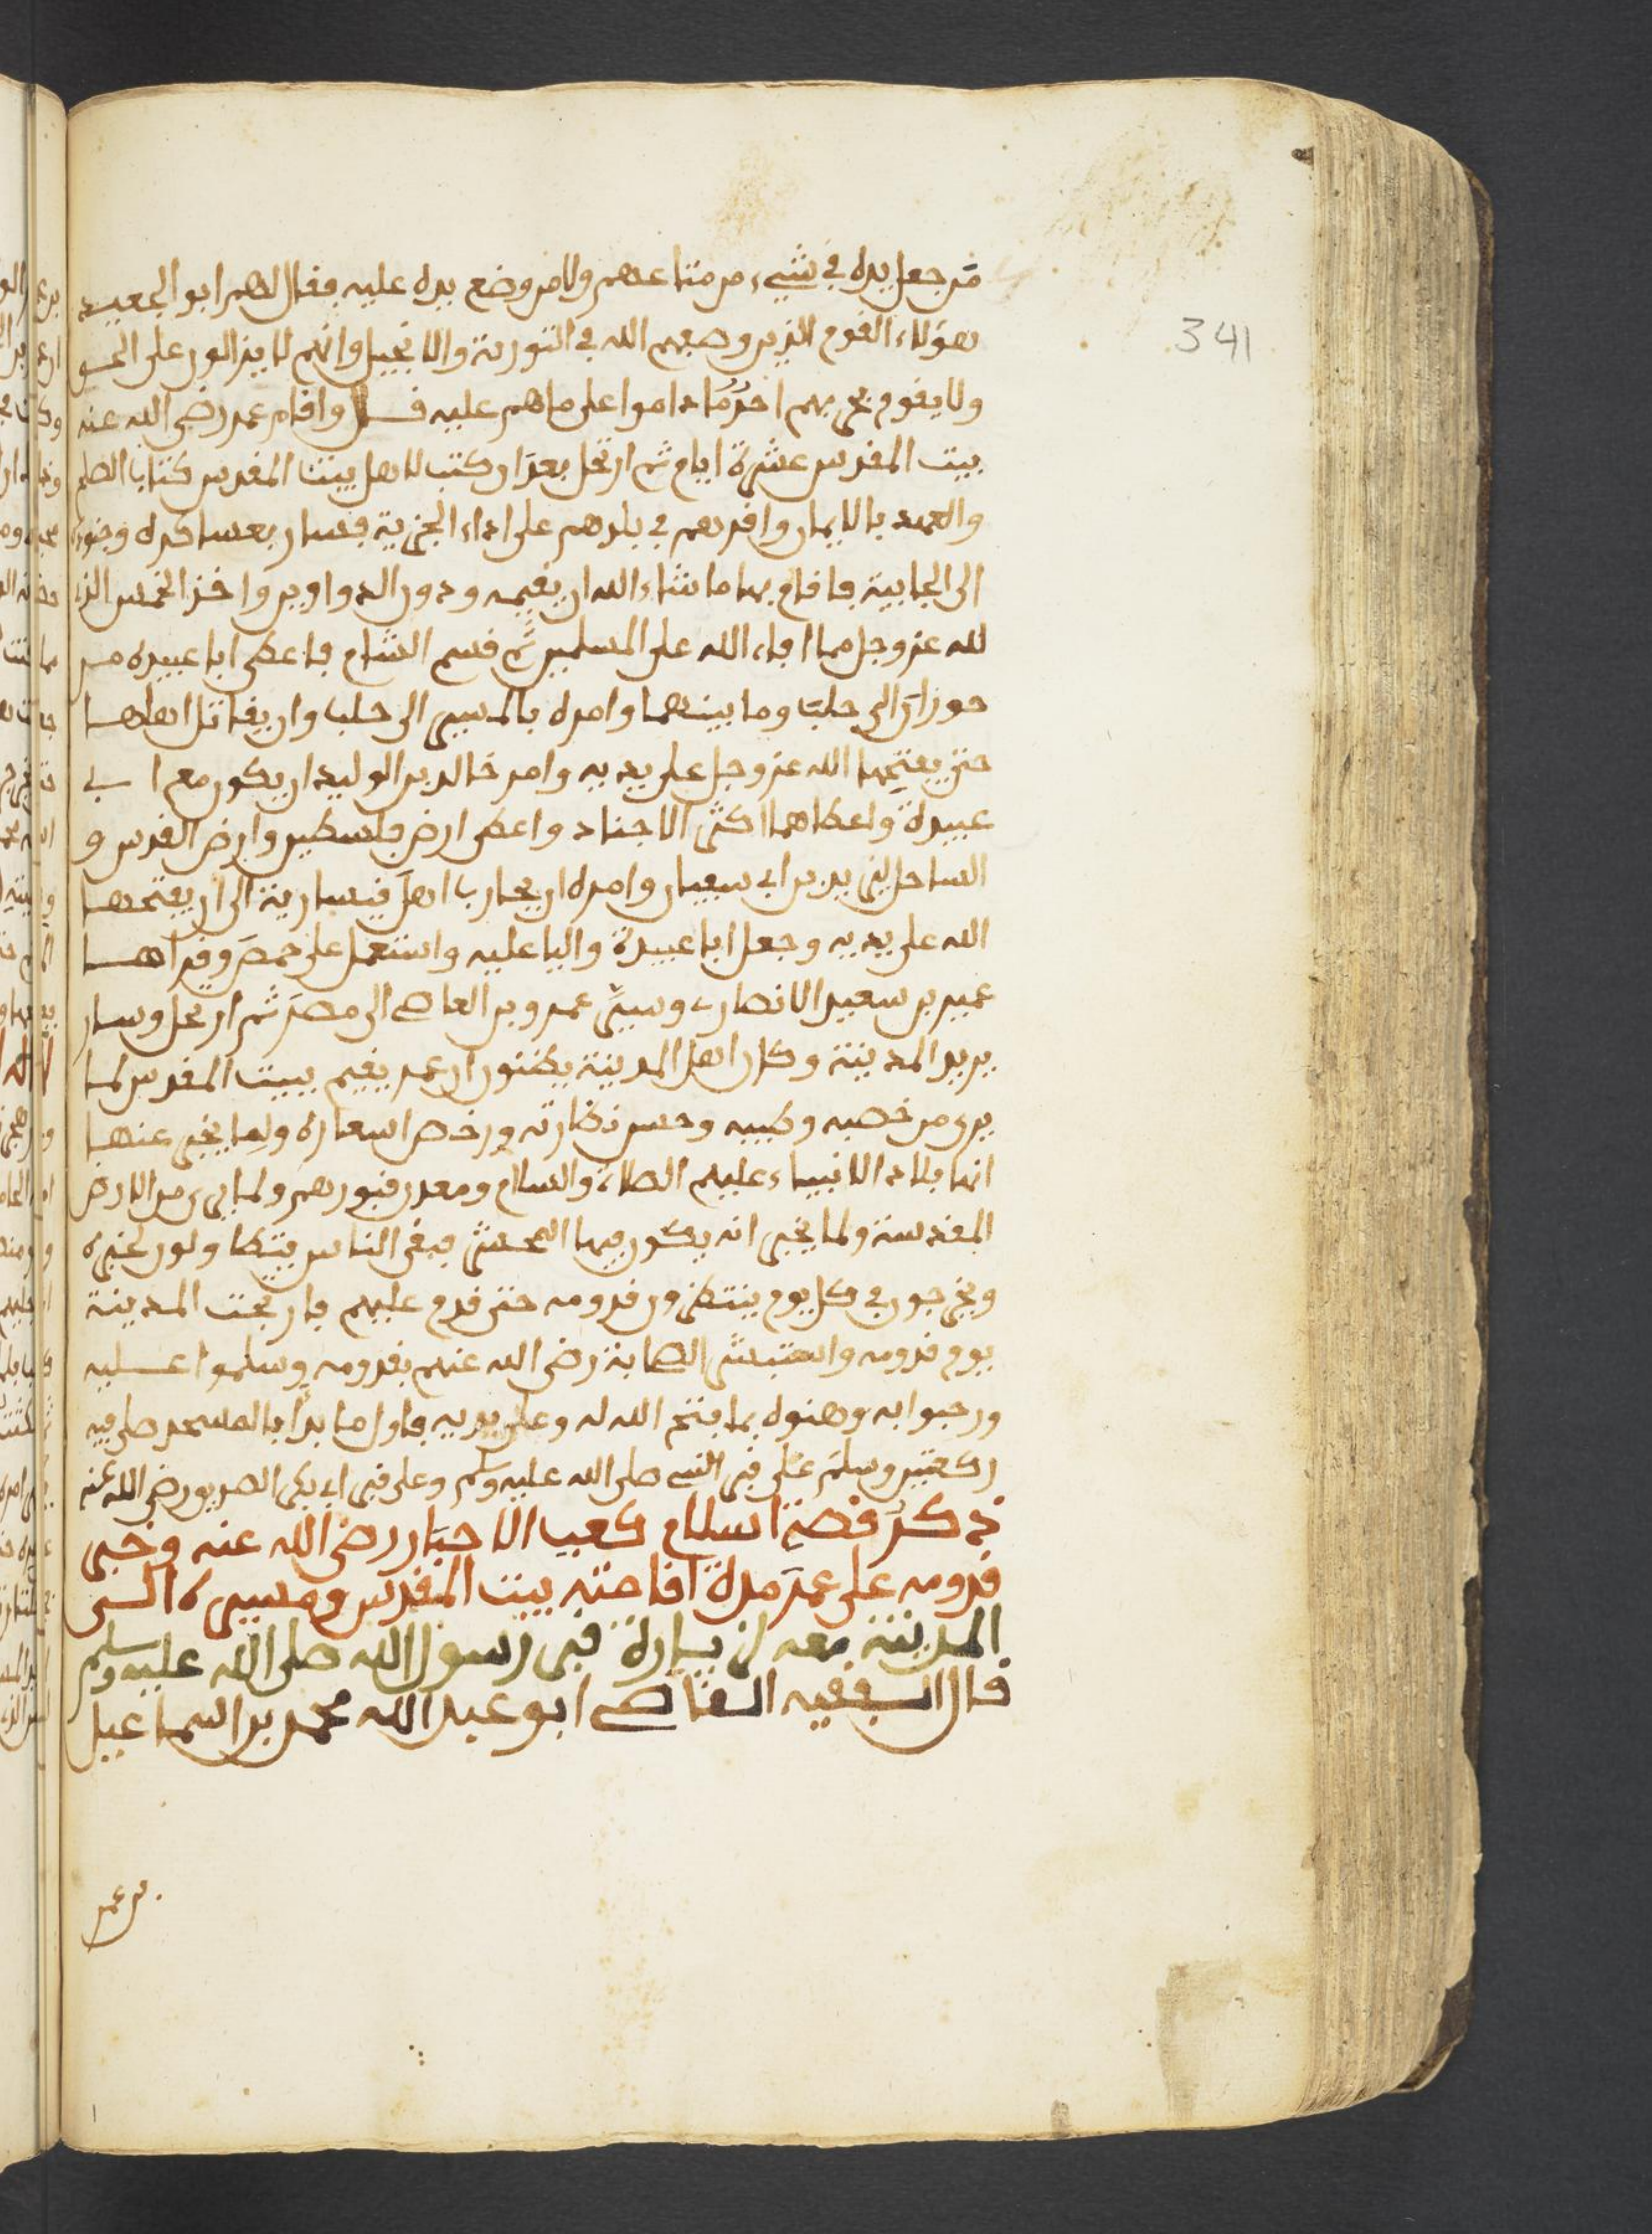 من جعل يده في شيء من متاعهم ولا من وضع يده عليه فقال لهم ابو الجعيد
هؤلاء القوم الذين وصفهم الله في التورية والانجيل وانهم لا يزالون على الحق
ولا يقوم بحربهم احد ما داموا على ما هم عليه قال واقام عمر رضي الله عنه
ببيت المقدس عشرة ايام ثم ارتحل بعد ان كتب لاهل بيت المقدس كتاب الصلح
والعهد بالايمان واقرهم في بلدهم على اداء الجزية فسار بعساكره وجنوده
الى الجابية فاقام بها ما شاء الله ان يقيم ودون الدواوين واخذ الخمس الذي
لله عز وجل مما افاء الله على المسلمين ثم قسم الشام فاعطى ابا عبيدة من
حوران الى حلب وما بينهما وامره بالمسير الى حلب وان يقاتل اهلها
حتى يفتحها الله عز وجل على يديه وامر خالد بن الوليد ان يكون مع ابي
عبيدة واعطاهما اكثر الاجناد واعطى ارض فلسطين وارض القدس و
الساحل ليزيد بن ابي سفيان وامره ان يحارب اهل قيسارية الى ان يفتحها
الله على يديه وجعل ابا عبيدة واليا عليه واستعمل على حمص وقراها
عمير بن سعيد الانصاري وسير عمرو بن العاصي الى مصر ثم ارتحل وسار
يريد المدينة وكان اهل المدينة يظنون ان عمر يقيم ببيت المقدس لما
يرى من خصبه وطيبه وحسن نظارته ورخص اسعاره ولما يخبر عنها
انها بلاد الانبياء عليهم الصلاة والسلام ومعدن قبورهم ولما يرى من الارض
المقدسة ولما يخبر انه يكون فيها المحشر فبقى الناس يتطاولون لخبره
ويخرجون في كل يوم ينتظرون قدومه حتى قدم عليهم فارتجت المدينة
يوم قدومه واستبشر الصحابة رضي الله عنهم بقدومه وسلموا عليه
ورحبوا به وهنوه بما فتح الله له وعلى يديه فاول ما بدا بالمسجد صلى فيه
ركعتين وسلم على قبر النبي صلى الله عليه وسلم وعلى قبر ابي بكر الصديق رضي الله عنه
ذكر قصة اسلام كعب الاحبار رضي الله عنه وخبر
قدومه على عمر مدة اقامته ببيت المقدس ومسيره الى
المدينة معه لزيارة قبر رسول الله صلى الله عليه وسلم
قال الفقيه القاضي ابو عبد الله محمد بن اسماعيل
بن عمر
341